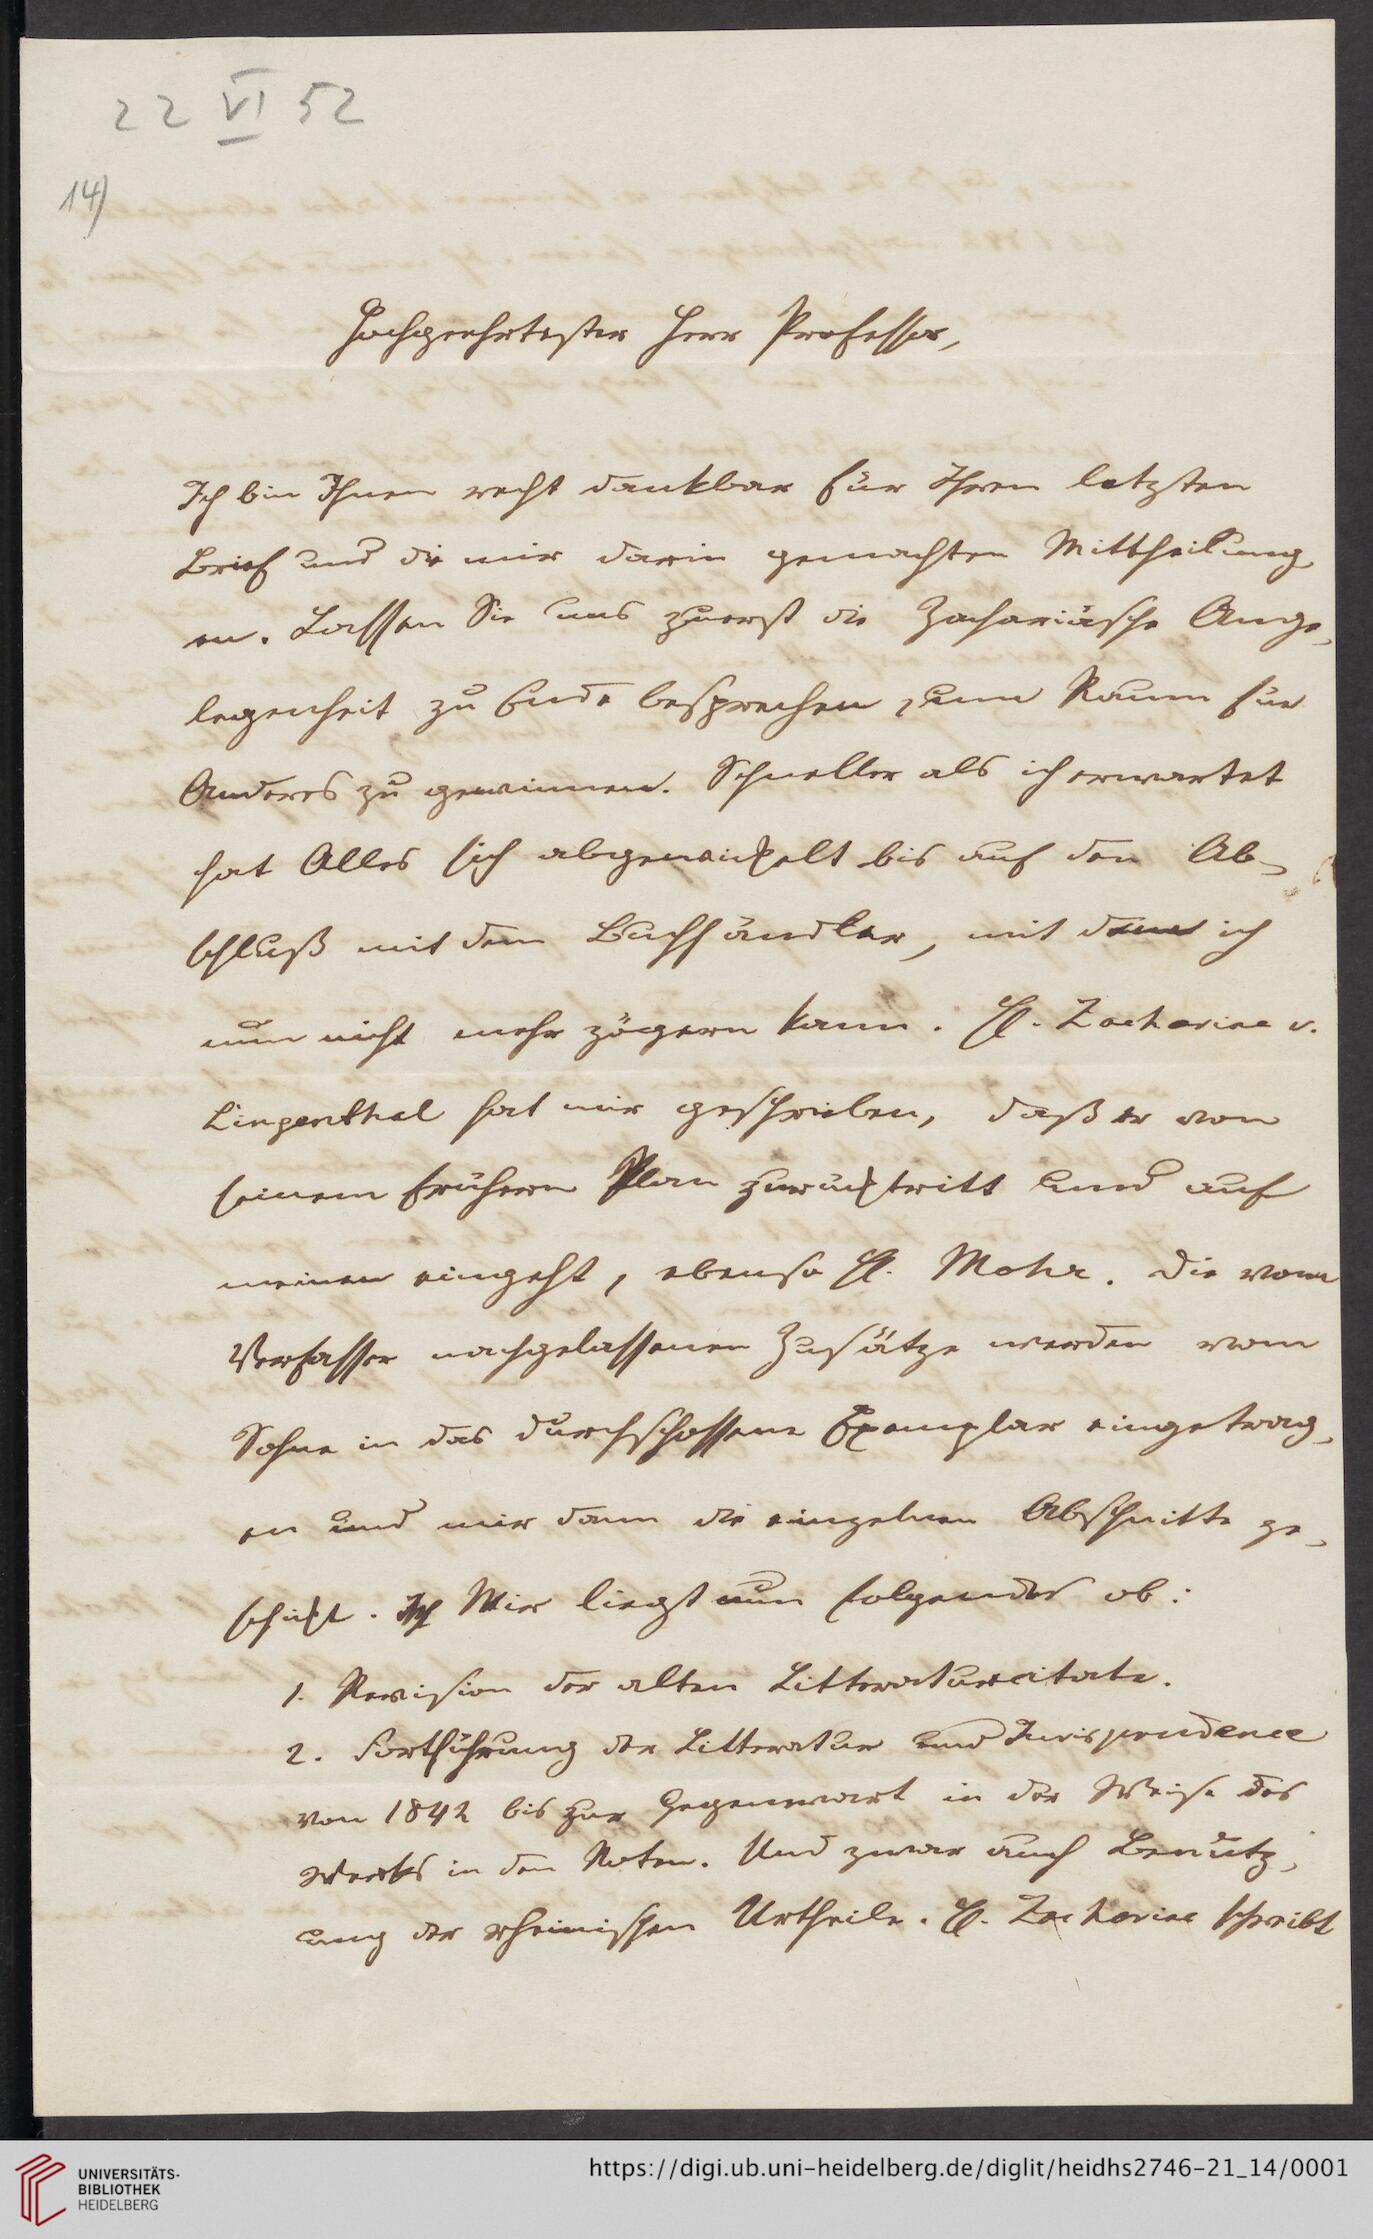 22 VI 52
14)
Hochgeehrtester Herr Professor,
Ich bin Ihnen recht dankbar für Ihren letzten
Brief und die mir darin gemachten Mittheilung-
en. Lassen Sie uns zuerst die Zachariäsche Ange-
legenheit zu Ende besprechen, um Raum für
Anderes zu gewinnen. Schneller als ich erwartet
hat Alles sich abgewickelt bis auf den Ab-
schluß mit dem Buchhändler, mit dem ich
nun nicht mehr zögern kann. H. Zachariae v.
Lingenthal hat mir geschrieben, daß er von
seinem frühern Plan zurücktritt und auf
meinen eingeht, ebenso H. Mohr. Die vom
Verfasser nachgelassenen Zusätze werden vom
Sohne in das durchschossene Exemplar eingetrag-
en und mir dann die einzelnen Abschnitte ge-
schickt. Ich Mir liegt nun folgendes ob:
1. Revision der alten Litteraturcitate.
2. Fortführung der Litteratur und Jurisprudence
von 1842 bis zur Gegenwart in der Weise des
Werks in den Noten. Und zwar auch Benutz-
ung der rheinischen Urtheile. H. Zachariae schreibt
UNIVERSITÄTS-
BIBLIOTHEK
HEIDELBERG
https://digi.ub.uni-heidelberg.de/diglit/heidhs2746-21_14/0001